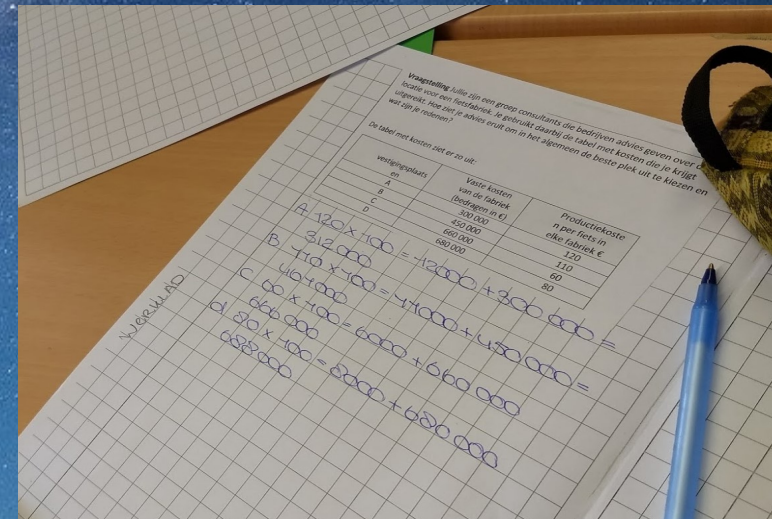 Vraagstelling Jullie zijn een groep consultants die bedrijven advies geven over d
locatie voor een fietsfabriek. Je gebruikt daarbij de tabel met kosten die je krijgt
uitgereikt. Hoe ziet je advies eruit om in het algemeen de beste plek uit te kiezen en
wat zijn je redenen?
De tabel met kosten ziet er zo uit:
vestigingsplaats
en
Vaste kosten
van de fabriek
(bedragen in €)
Productiekoste
n per fiets in
elke fabriek €
A 300 000 120
B 450 000 110
C 660 000 60
D 680 000 80
A 120 x 100 = 12000 + 300 000 =
312000
B. 110 x 100 = 11000 + 450 000 =
461000
C 60 x 100 = 6000 + 660 000
666 000
d. 80 x 100 = 8000 + 680 000
688000
WERKBLAD